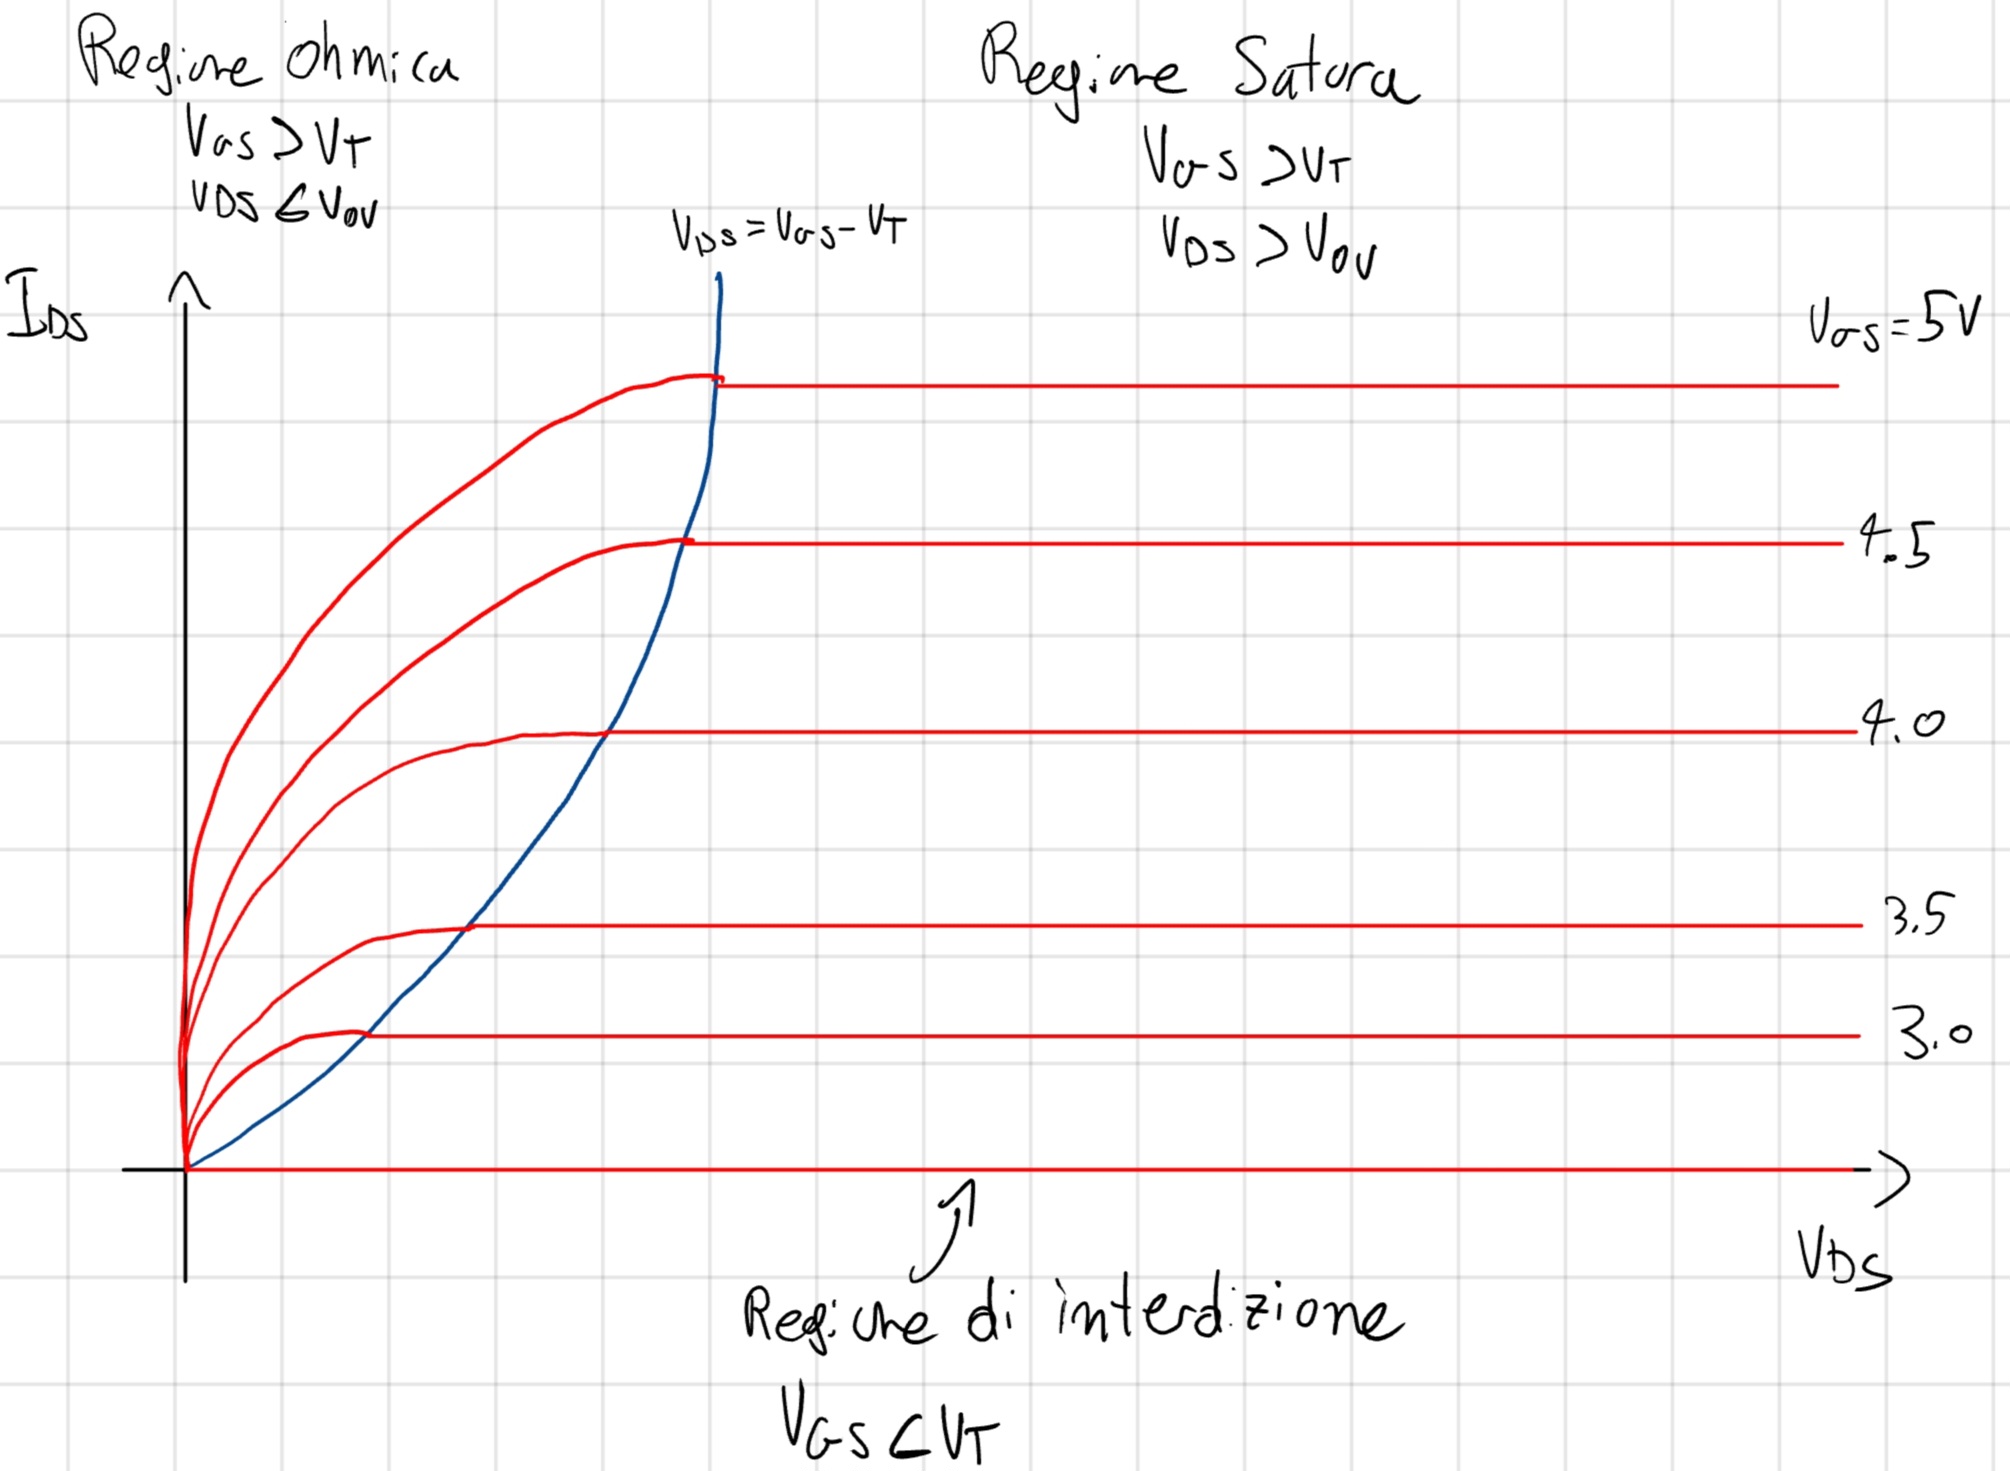 Regione Ohmica
VGS > VT
VDS ≤ VOV
Regione Satura
VGS > VT
VDS > VOV
VDS = VGS - VT
IDS
VGS = 5V
4.5
4.0
3.5
3.0
VDS
Regione di interdizione
VGS < VT